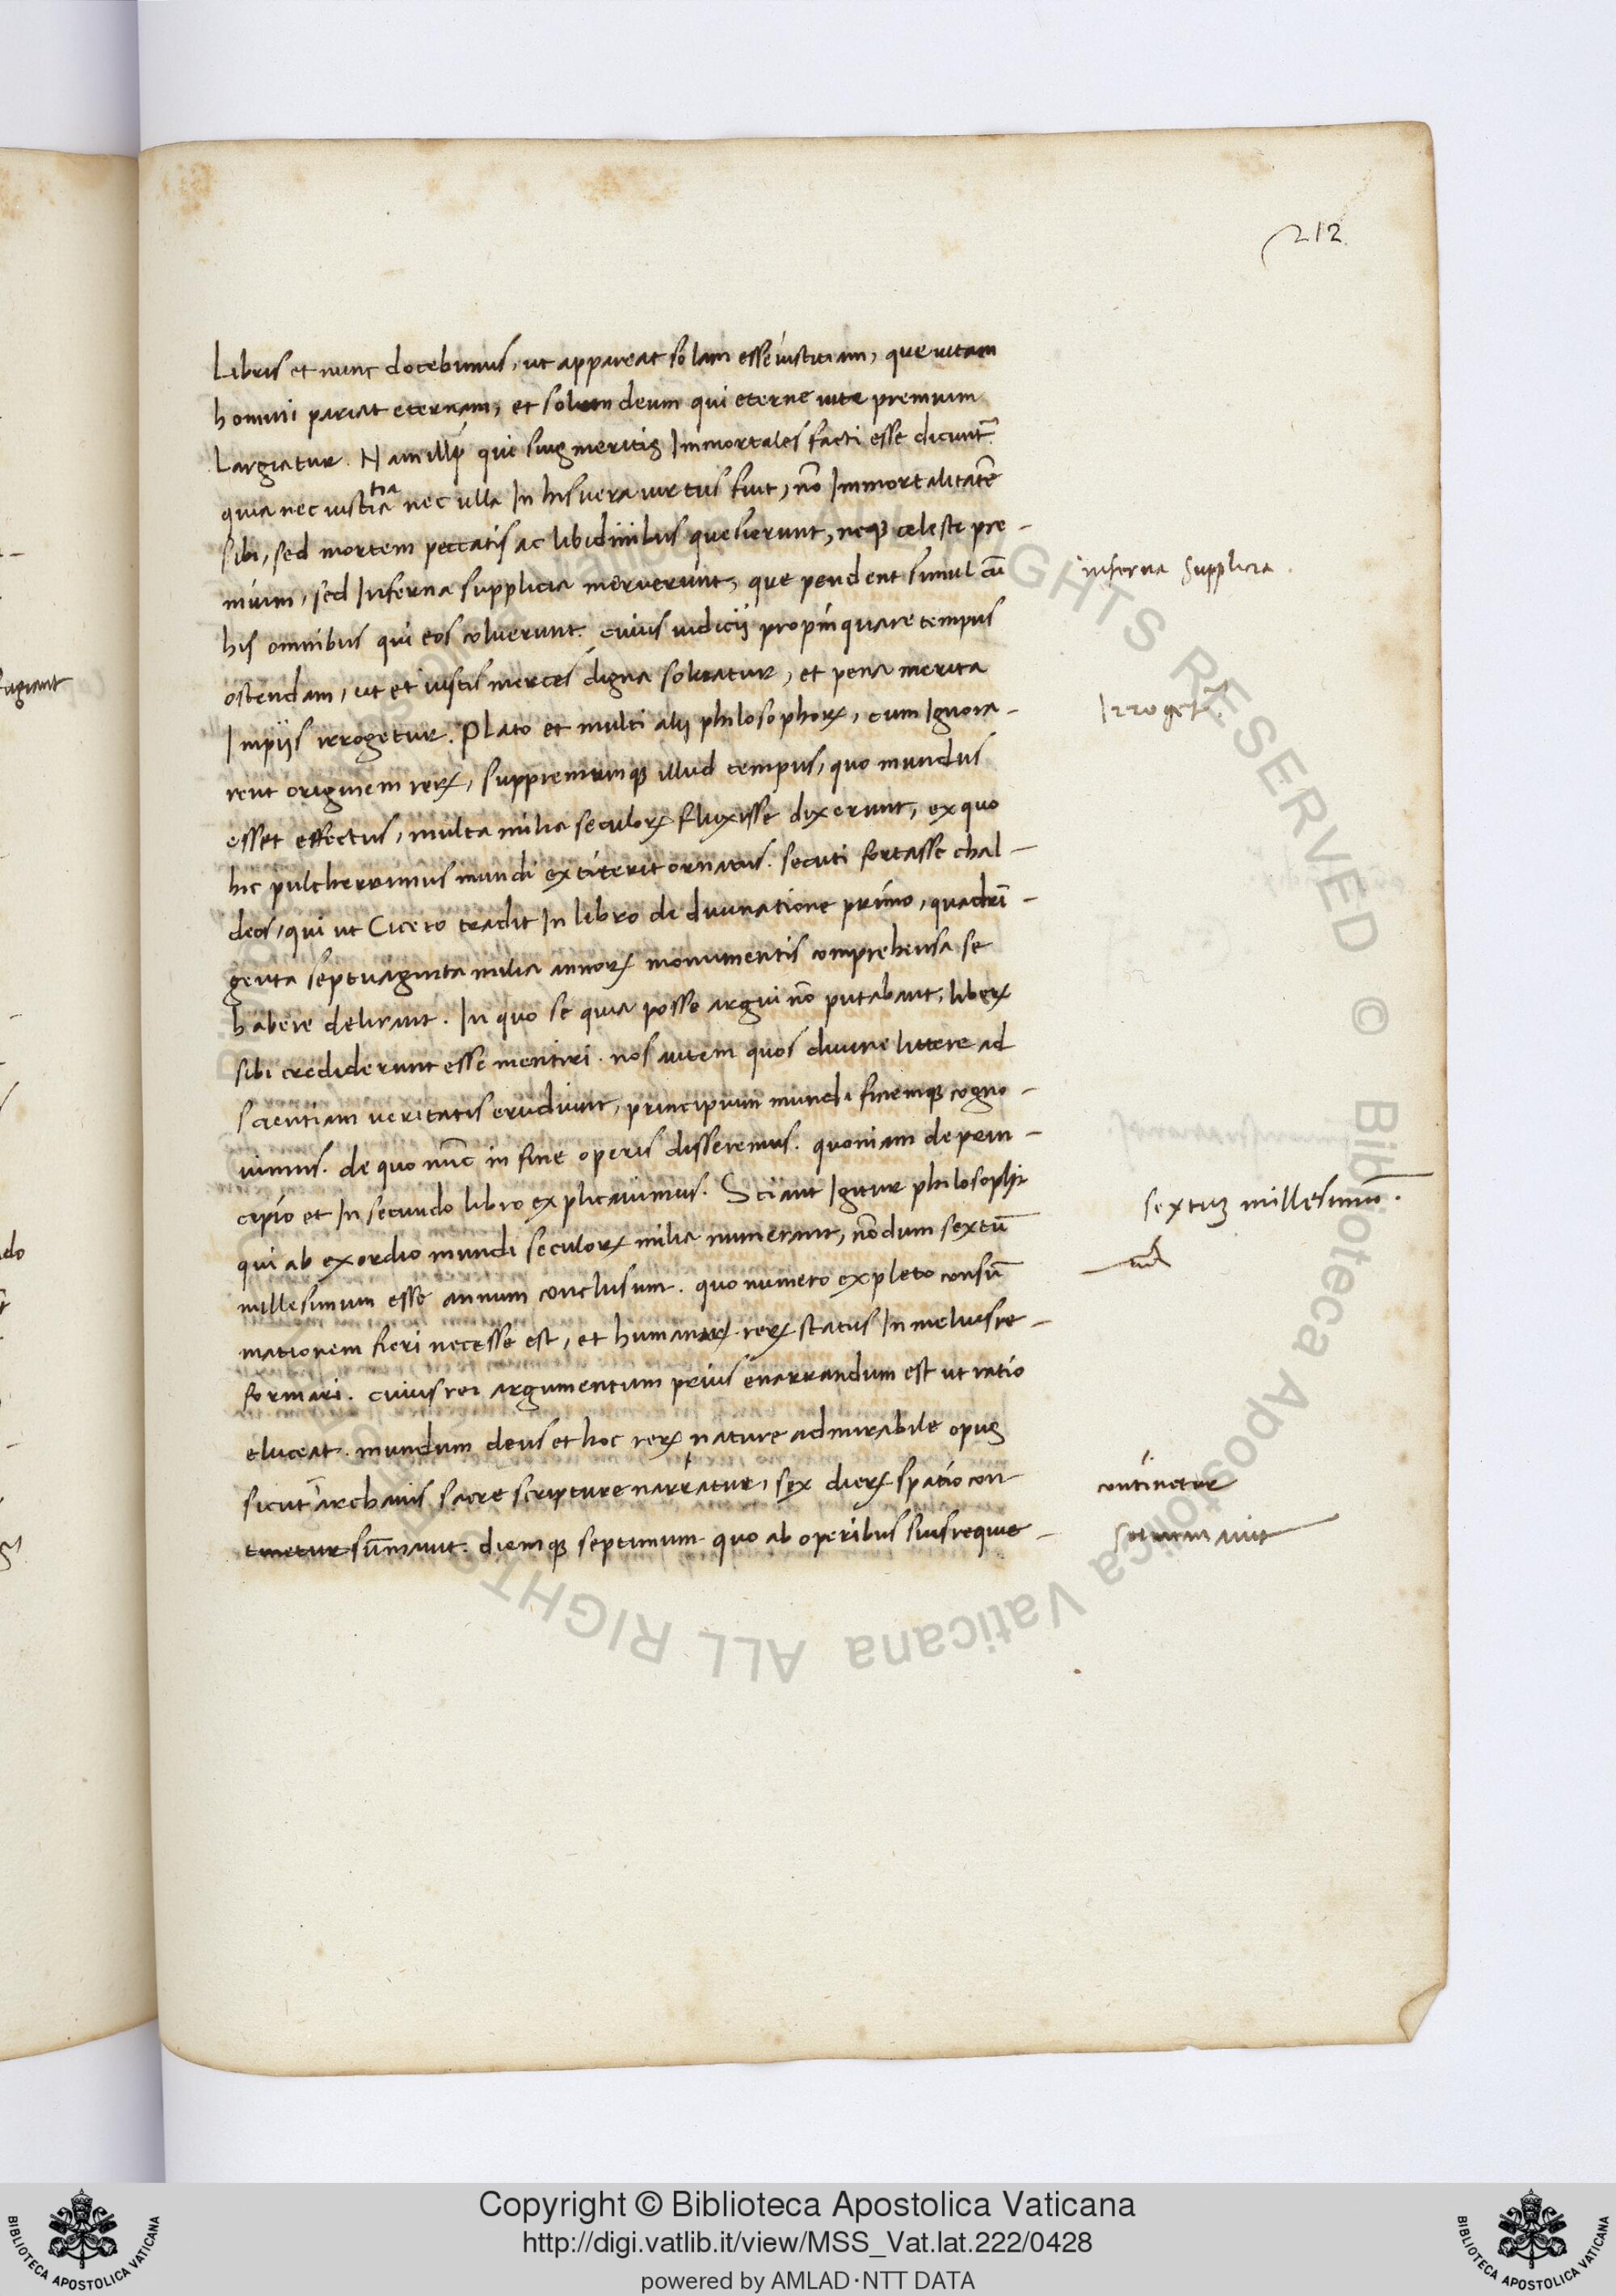 212
Libris et nunc docebimus, ut appareat solam esse iustitiam, que uitam
homini pariat eternam, et solum deum qui eterne uite premium
Largiatur. Nam illi qui suis meritis Immortales facti esse dicunt᷑
quia nec iusticia nec ulla In his uera uirtus fuit, nō Immortalitatē
sibi, sed mortem peccatis ac libidinibus quesierunt, neqꝫ celeste pre-
mium, sed Inferna supplicia meruerunt, que pendent simul cū
his omnibus qui eos coluerunt. cuius iudicii propinquare tempus
ostendam, ut et iustis merces digna soluatur, et pena merita
Impiis irrogetur. Plato et multi alij philosophoꝝ, cum Ignora-
rent originem reꝝ, suppremumqꝫ illud tempus, quo mundus
esset effectus, multa milia seculoꝝ fluxisse dixerunt, ex quo
hic pulcherrimus mundi extiterit ornatus. secuti fortasse chal-
deos, qui ut Cicero tradit In libro de diuinatione primo, quadrī-
genta septuaginta milia annoꝝ monumentis comprehensa se
habere delirant. In quo se quia posse argui nō putabant, libeꝝ
sibi crediderunt esse mentiri. nos autem quos diuine littere ad
scientiam ueritatis erudiunt, principium mundi finemqꝫ cogno-
uimus. de quo nūc in fine operis disseremus. quoniam de prin-
cipio et In secundo libro explicauimus. Sciant Igitur philosophi
qui ab exordio mundi seculoꝝ milia numerant, nōdum sextū
millesimum esse annum conclusum. quo numero expleto consū-
mationem fieri necesse est, et humanaꝝ reꝝ status In melius re-
formari. cuius rei argumentum prius enarrandum est ut ratio
eluceat. mundum deus et hoc reꝝ nature admirabile opus
sicut archanis sacre scripture narratur, sex dieꝝ spatio con-
tinetur sūmauit. diemqꝫ septimum quo ab operibus suis requie-
tia
inferna supplicia.
Irroget᷑.
sextus millesimus.
continetur
summauit
fugiant
Copyright © Biblioteca Apostolica Vaticana
http://digi.vatlib.it/view/MSS_Vat.lat.222/0428
powered by AMLAD·NTT DATA
BIBLIOTECA APOSTOLICA VATICANA
BIBLIOTECA APOSTOLICA VATICANA